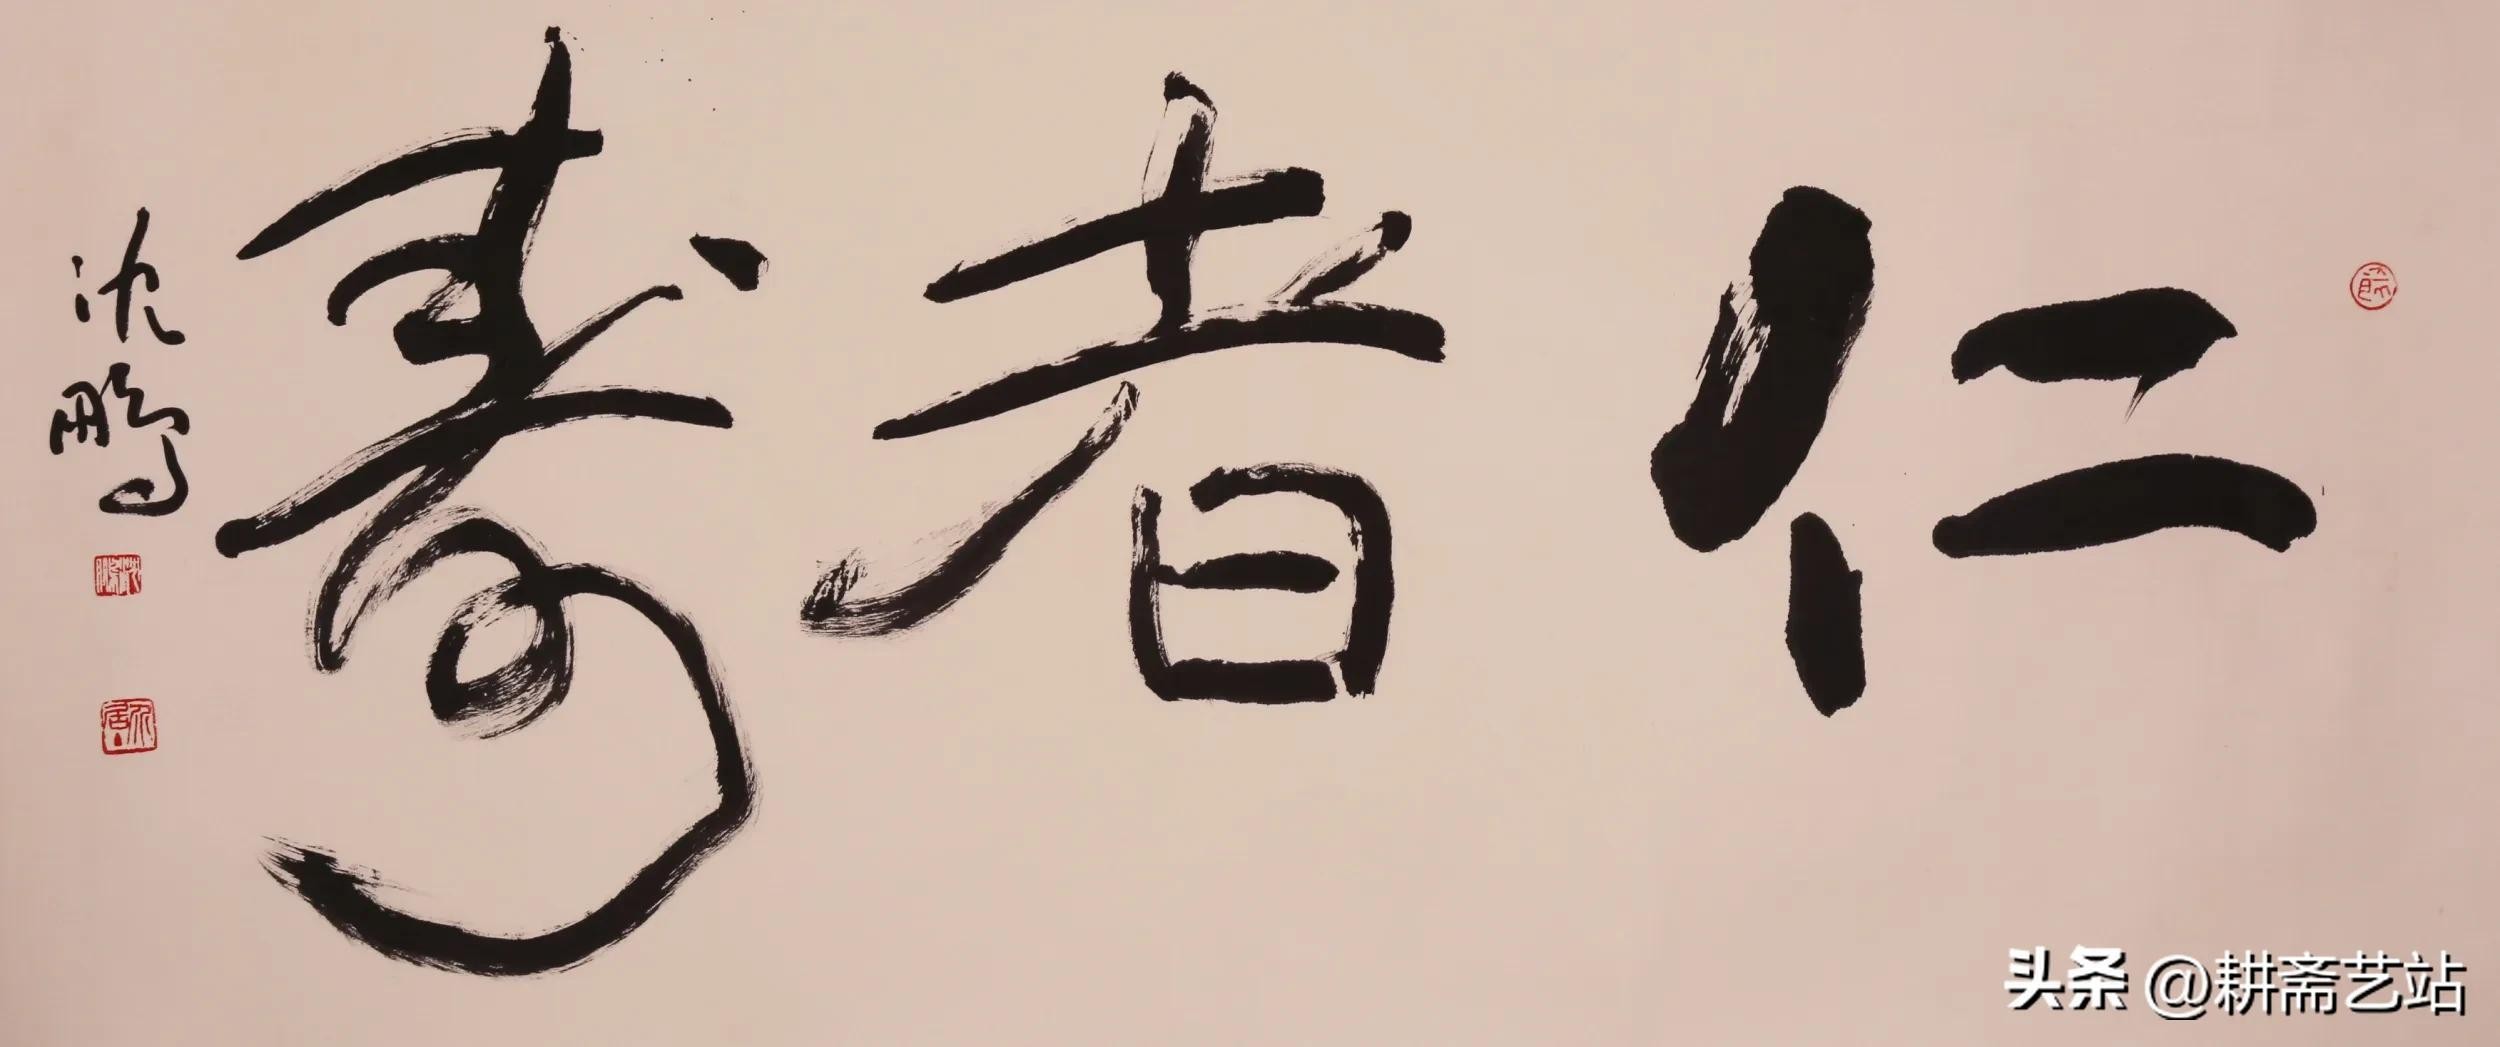 仁者寿
沈鹏
头条 @耕斋艺站